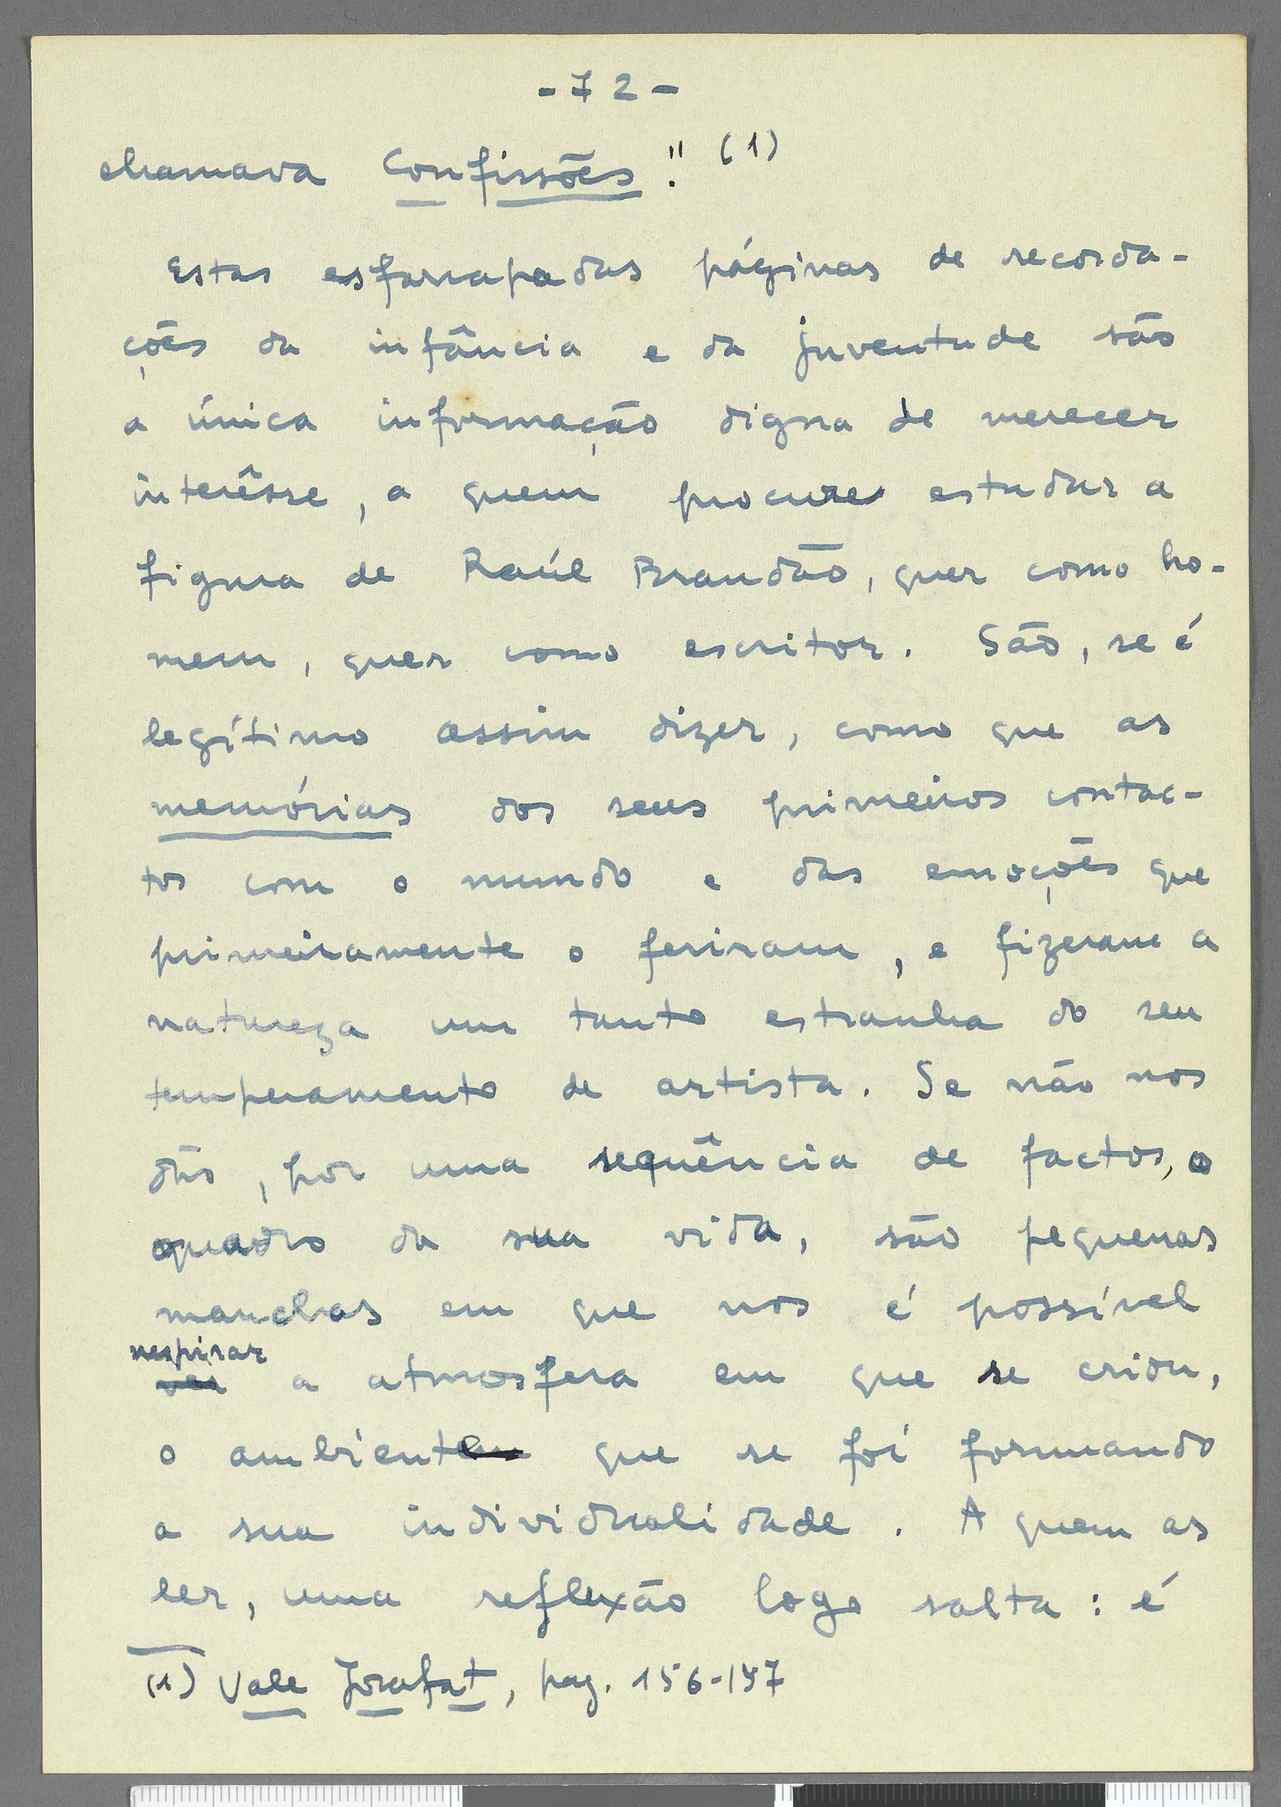 - 72 -
chamava Confissões!! (1)
Estas esfarrapadas páginas de recorda-
ções da infância e da juventude são
a única informação digna de merecer
interêsse, a quem procure estudar a
figura de Raúl Brandão, quer como ho-
mem, quer como escritor. São, se é
legítimo assim dizer, como que as
memórias dos seus primeiros contac-
tos com o mundo e das emoções que
primeiramente o feriram, e fizeram a
natureza um tanto estranha do seu
temperamento de artista. Se não nos
dão, por uma sequência de factos, o
quadro da sua vida, são pequenas
manchas em que nos é possível
respirar
ver a atmosfera em que se criou,
o ambiente que se foi formando
a sua individualidade. A quem as
ler, uma reflexão logo salta: é
(1) Vale Josafat, pag. 156-157